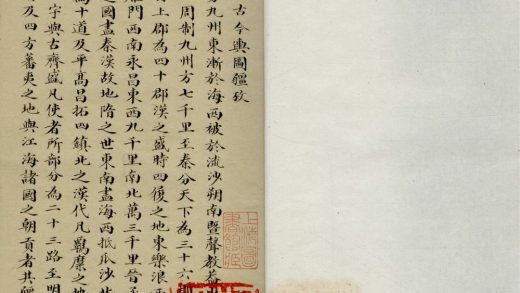 古今輿圖疆攷
方九州東漸於海西被於流沙朔南暨聲教蓋
周制九州方七千里至秦分天下為三十六郡
上郡為四十郡漢之盛時四復之地東樂浪
門西南永昌東西九千里南北萬三千里晉
之國盡秦漢故地隋之世東南盡海西抵瓜沙北
為十道及平高昌拓四鎮北之漢代凡羈縻之地
字與古齊盛凡使者所部分為二十三路至明
及四方蕃夷之地與江海諸國之朝貢者其疆
上海圖書館藏